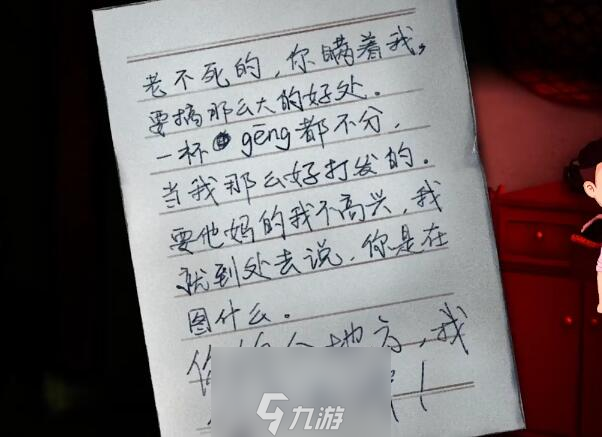 老不死的，你瞒着我，
要搞那么大的好处.
一杯gēng都不分，
当我那么好打发的.
要他妈的我不高兴，我
就到处去说，你是在
图什么。
你给个地方，我
九游